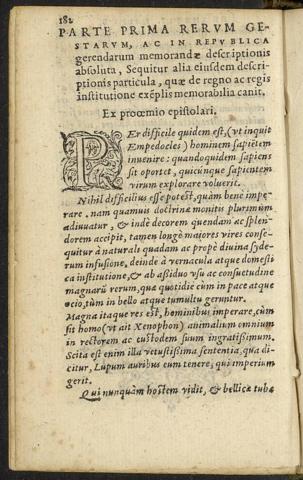 182
PARTE PRIMA RERVM GE-
STARVM, AC IN REPVBLICA
gerendarum memorandæ descriptionis
absoluta, Sequitur alia eiusdem descri-
ptionis particula, quæ de regno ac regis
institutione exẽplis memorabilia canit.
Ex proœmio epistolari.
PEr difficile quidem est, (vt inquit
Empedocles) hominem sapiẽtem
inuenire: quandoquidem sapiens
sit oportet, quicunque sapientem
virum explorare voluerit.
Nihil difficilius esse potest, quàm benè impe-
rare, nam quamuis doctrinæ monitis plurimùm
adiuuatur, & indè decorem quendam ac splen-
dorem accipit, tamen longè maiores vires conse-
quitur à naturali quadam ac propè diuina syde-
rum infusione, deinde à vernacula atque domesti
ca institutione, & ab assiduo vsu ac consuetudine
magnarũ rerum, quæ quotidiè cùm in pace atque
ocio, tùm in bello atque tumultu geruntur.
Magna itaque res est, hominibus imperare, cùm
sit homo (vt ait Xenophon) animalium omnium
in rectorem ac custodem suum ingratissimum.
Scita est enim illa vetustissima sententia, qua di-
citur, Lupum auribus eum tenere, qui imperium
gerit.
Qui nunquàm hostem vidit, & bellicæ tubæ